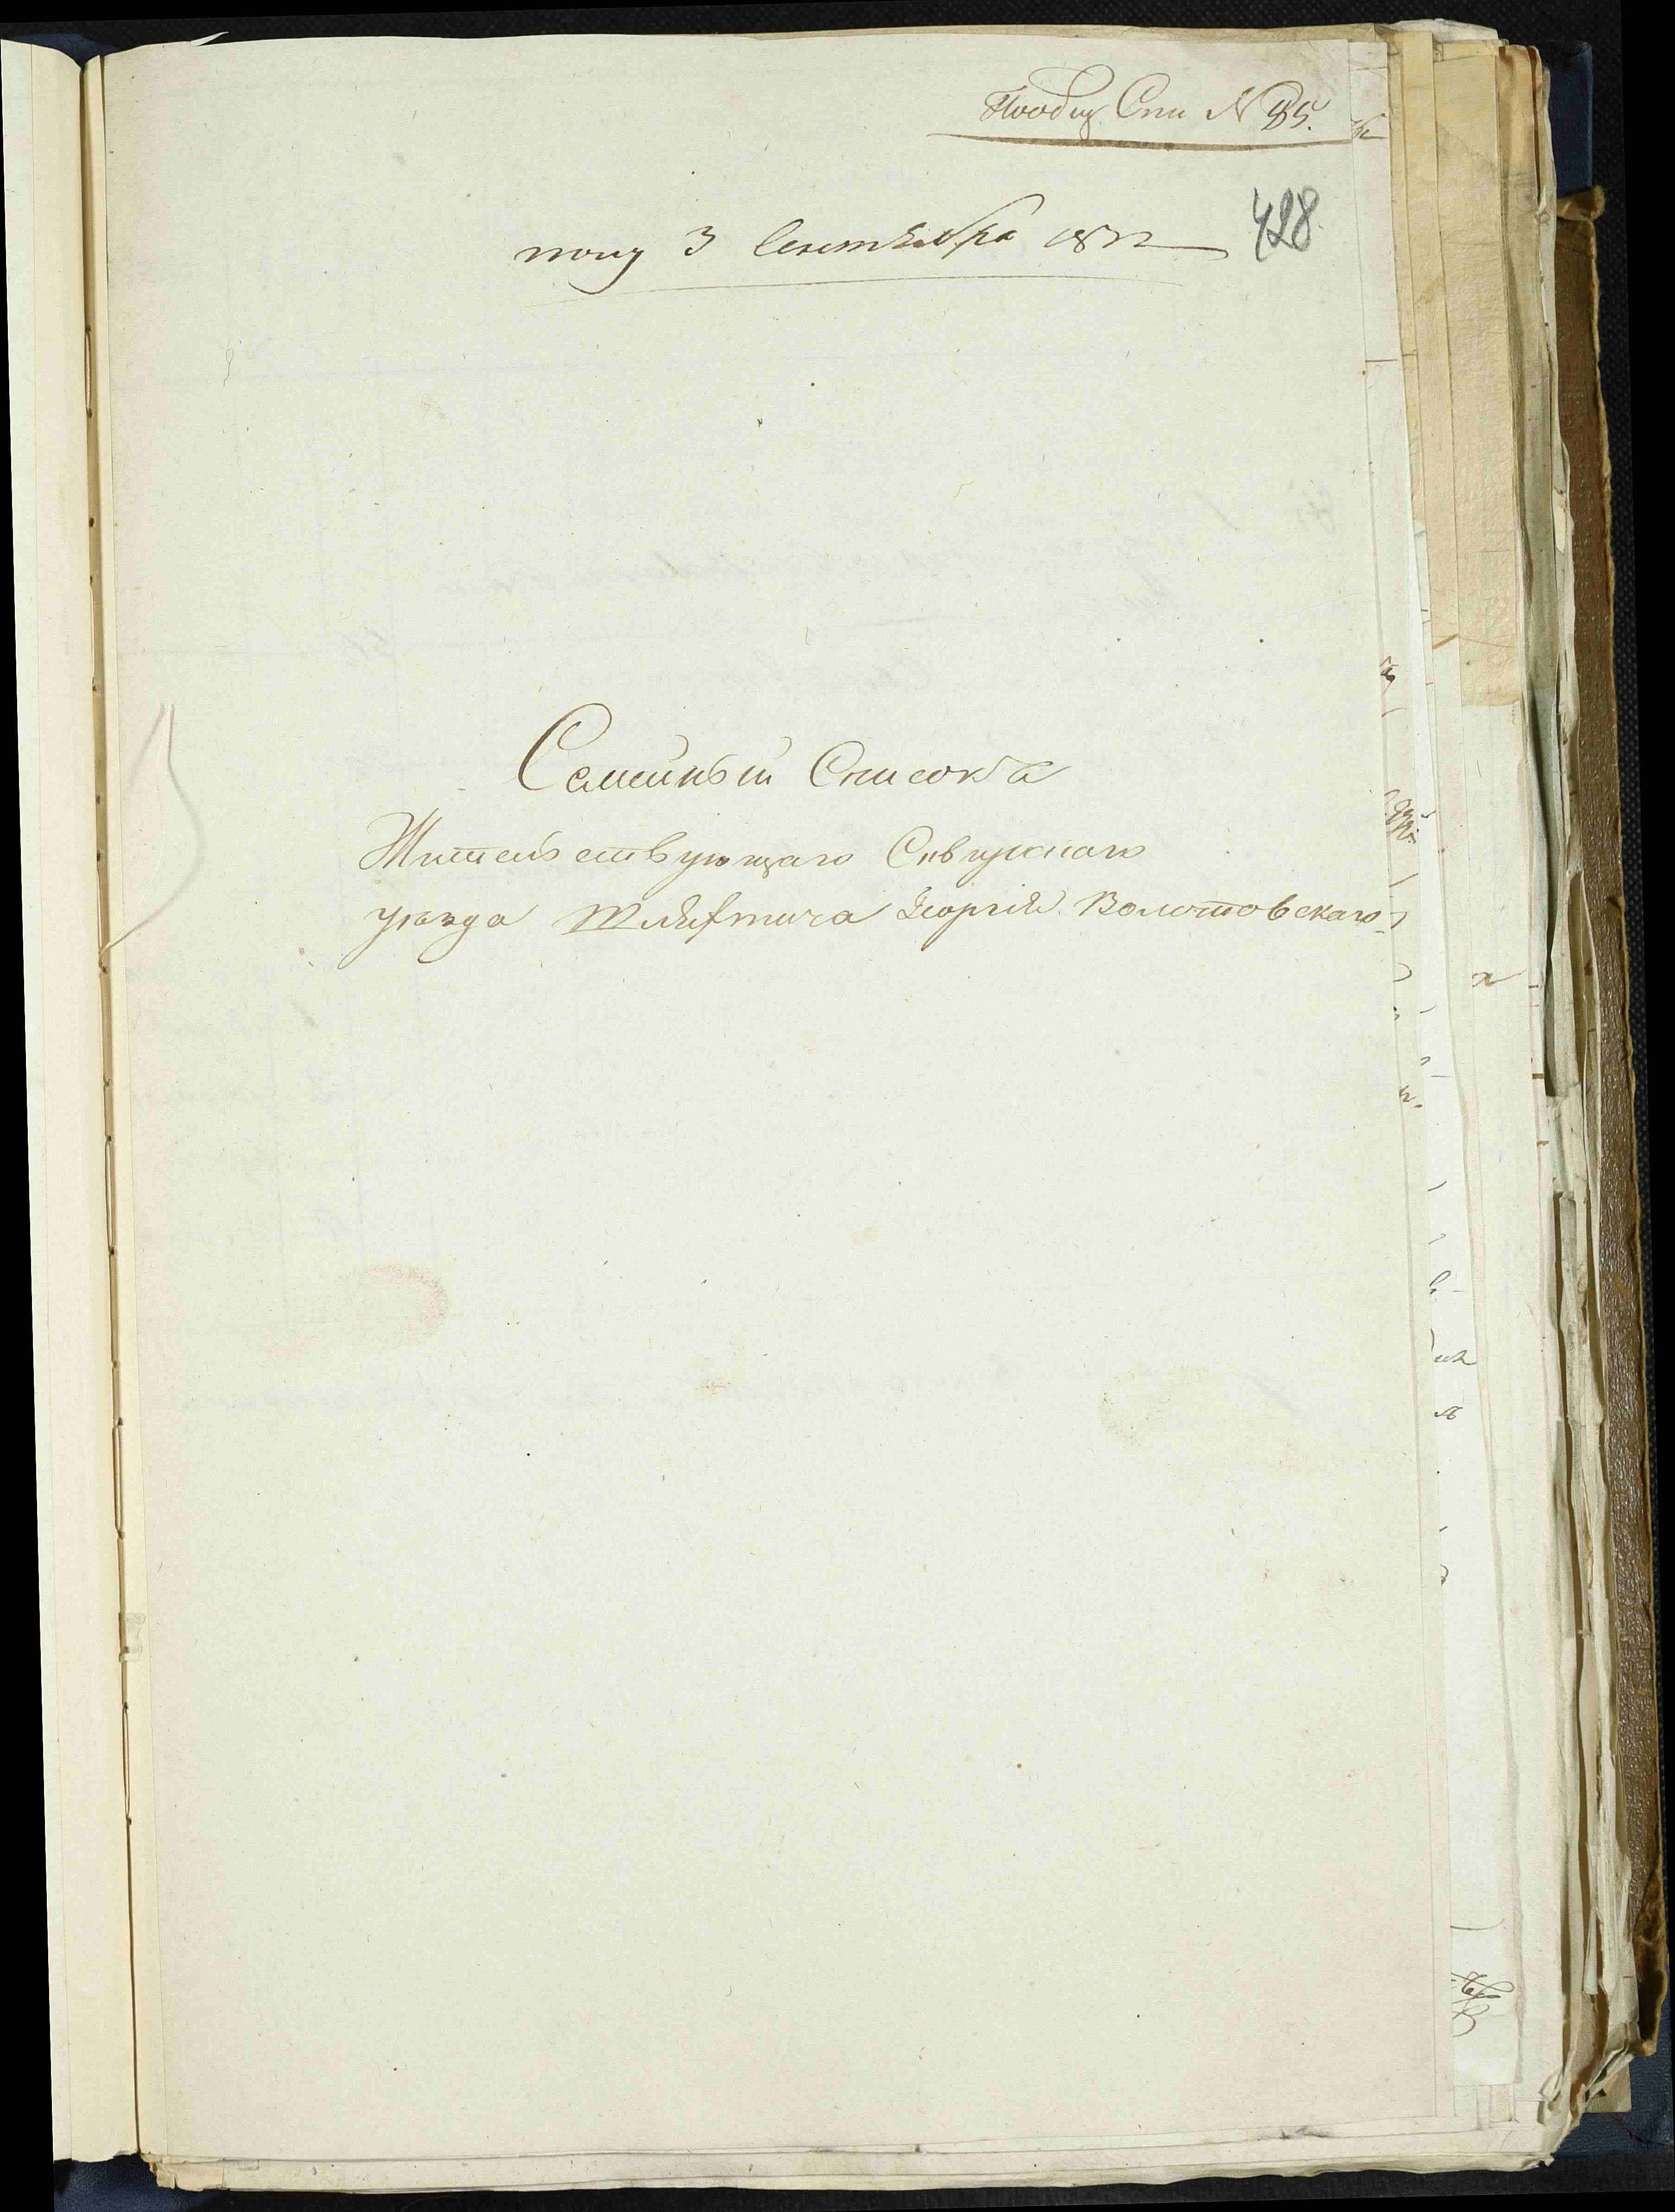 Пообщ Спи N 85.
428.
полу 3 Сентября 1832
Семейный Списокъ
Жительствующаго Сквирскаго
уѣзда Шляхтича Георгія Волотовскаго